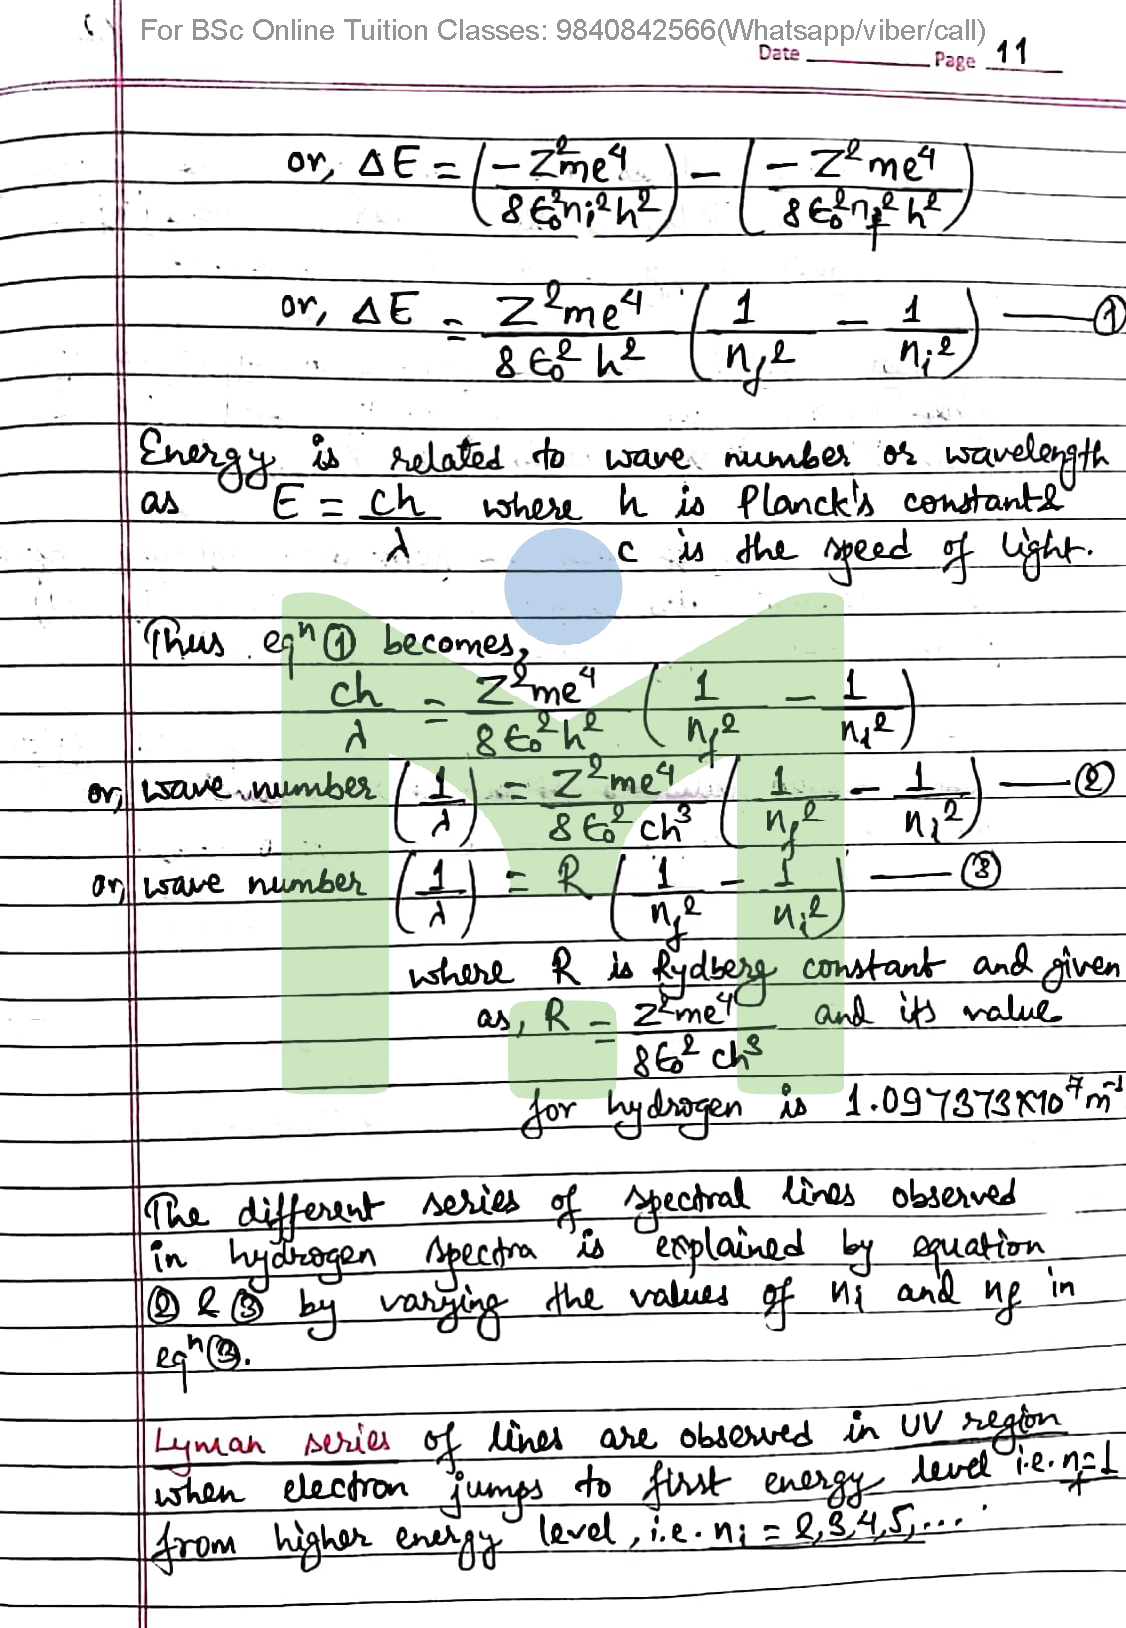 For BSc Online Tuition Classes: 9840842566(Whatsapp/viber/call)
Date Page 11
or, ΔE = (-Z²me⁴ / 8ε₀²nᵢ²h²) - (-Z²me⁴ / 8ε₀²n_f²h²)
or, ΔE = Z²me⁴ / 8ε₀²h² (1/n_f² - 1/nᵢ²) — ①
Energy is related to wave number or wavelength
as E = ch/λ where h is Planck's constant &
c is the speed of light.
Thus eqⁿ ① becomes,
ch/λ = Z²me⁴ / 8ε₀²h² (1/n_f² - 1/nᵢ²)
or, wave number (1/λ) = Z²me⁴ / 8ε₀²ch³ (1/n_f² - 1/nᵢ²) — ②
or, wave number (1/λ) = R (1/n_f² - 1/nᵢ²) — ③
where R is Rydberg constant and given
as, R = Z²me⁴ / 8ε₀²ch³ and its value
for hydrogen is 1.097373×10⁷m⁻¹
The different series of spectral lines observed
in hydrogen spectra is explained by equation
② & ③ by varying the values of nᵢ and n_f in
eqⁿ ③.
Lyman series of lines are observed in UV region
when electron jumps to first energy level i.e. n_f=1
from higher energy level, i.e. nᵢ = 2,3,4,5,...